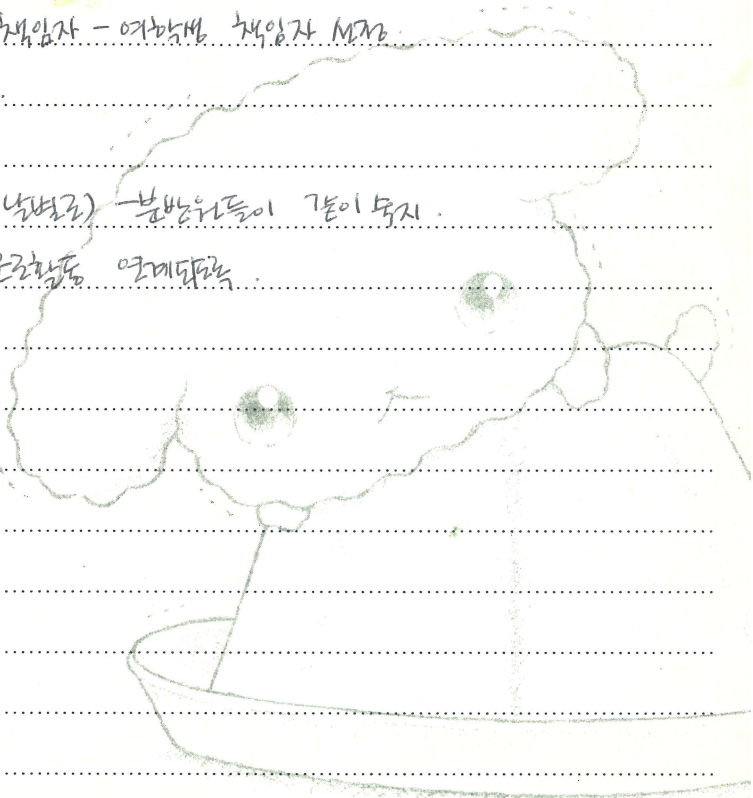 책임자 - 여학생 책임자 선정.
날별로) - 분반원들이 같이 숙지.
근로활동 연계되도록.